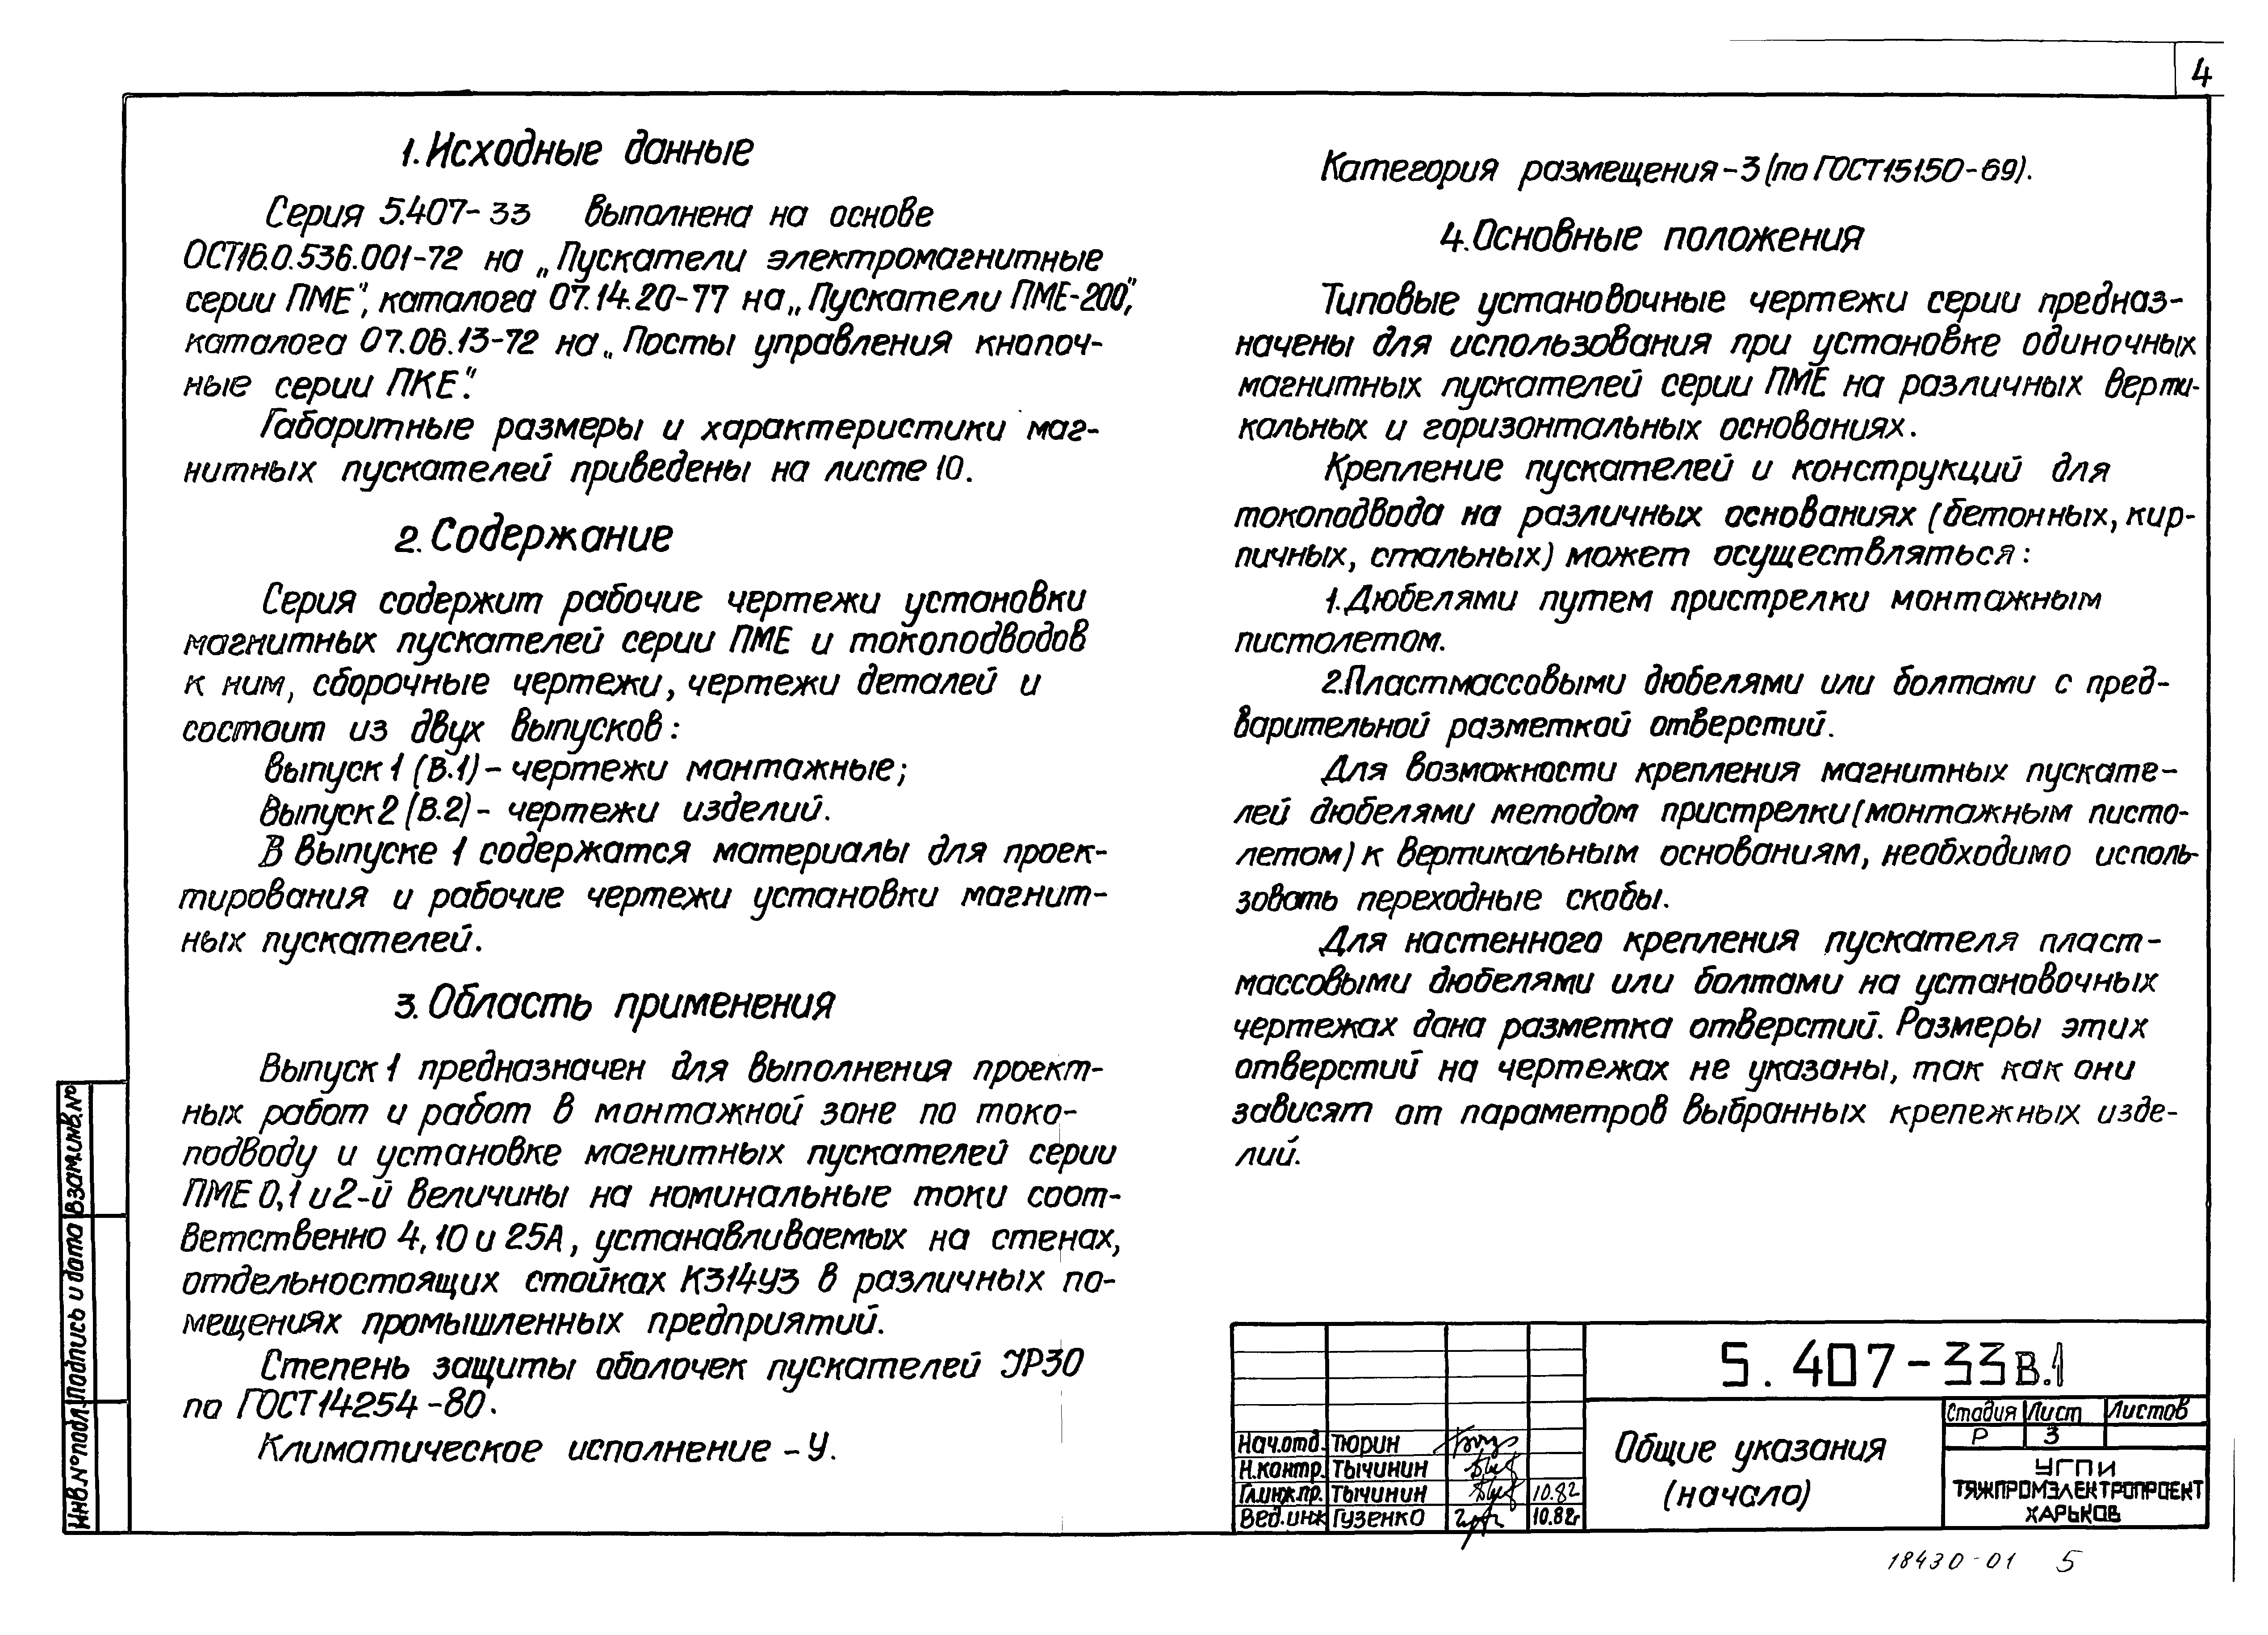 4
1. Исходные данные
Серия 5.407-33 выполнена на основе
ОСТ16.0.536.001-72 на „Пускатели электромагнитные
серии ПМЕ", каталога 07.14.20-77 на „Пускатели ПМЕ-200",
каталога 07.06.13-72 на „Посты управления кнопоч-
ные серии ПКЕ".
Габаритные размеры и характеристики маг-
нитных пускателей приведены на листе 10.
2. Содержание
Серия содержит рабочие чертежи установки
магнитных пускателей серии ПМЕ и токоподводов
к ним, сборочные чертежи, чертежи деталей и
состоит из двух выпусков:
Выпуск 1 (В.1) - чертежи монтажные;
Выпуск 2 (В.2) - чертежи изделий.
В выпуске 1 содержатся материалы для проек-
тирования и рабочие чертежи установки магнит-
ных пускателей.
3. Область применения
Выпуск 1 предназначен для выполнения проект-
ных работ и работ в монтажной зоне по токо-
подводу и установке магнитных пускателей серии
ПМЕ 0,1 и 2-й величины на номинальные токи соот-
ветственно 4, 10 и 25А, устанавливаемых на стенах,
отдельностоящих стойках К314У3 в различных по-
мещениях промышленных предприятий.
Степень защиты оболочек пускателей УР30
по ГОСТ14254-80.
Климатическое исполнение - У.
Категория размещения - 3 (по ГОСТ15150-69).
4. Основные положения
Типовые установочные чертежи серии предназ-
начены для использования при установке одиночных
магнитных пускателей серии ПМЕ на различных верти-
кальных и горизонтальных основаниях.
Крепление пускателей и конструкций для
токоподвода на различных основаниях (бетонных, кир-
пичных, стальных) может осуществляться:
1. Дюбелями путем пристрелки монтажным
пистолетом.
2. Пластмассовыми дюбелями или болтами с пред-
варительной разметкой отверстий.
Для возможности крепления магнитных пускате-
лей дюбелями методом пристрелки (монтажным писто-
летом) к вертикальным основаниям, необходимо исполь-
зовать переходные скобы.
Для настенного крепления пускателя пласт-
массовыми дюбелями или болтами на установочных
чертежах дана разметка отверстий. Размеры этих
отверстий на чертежах не указаны, так как они
зависят от параметров выбранных крепежных изде-
лий.
Взам.инв.№
Подпись и дата
Инв.№подл.
5.407-33 В.1
Нач.отд. Тюрин
Н.контр. Тычинин
Гл.инж.пр. Тычинин 10.82
Вед.инж Гузенко 10.82г
Общие указания
(начало)
Стадия Лист Листов
Р 3
УГПИ
ТЯЖПРОМЭЛЕКТРОПРОЕКТ
ХАРЬКОВ
18430-01 5